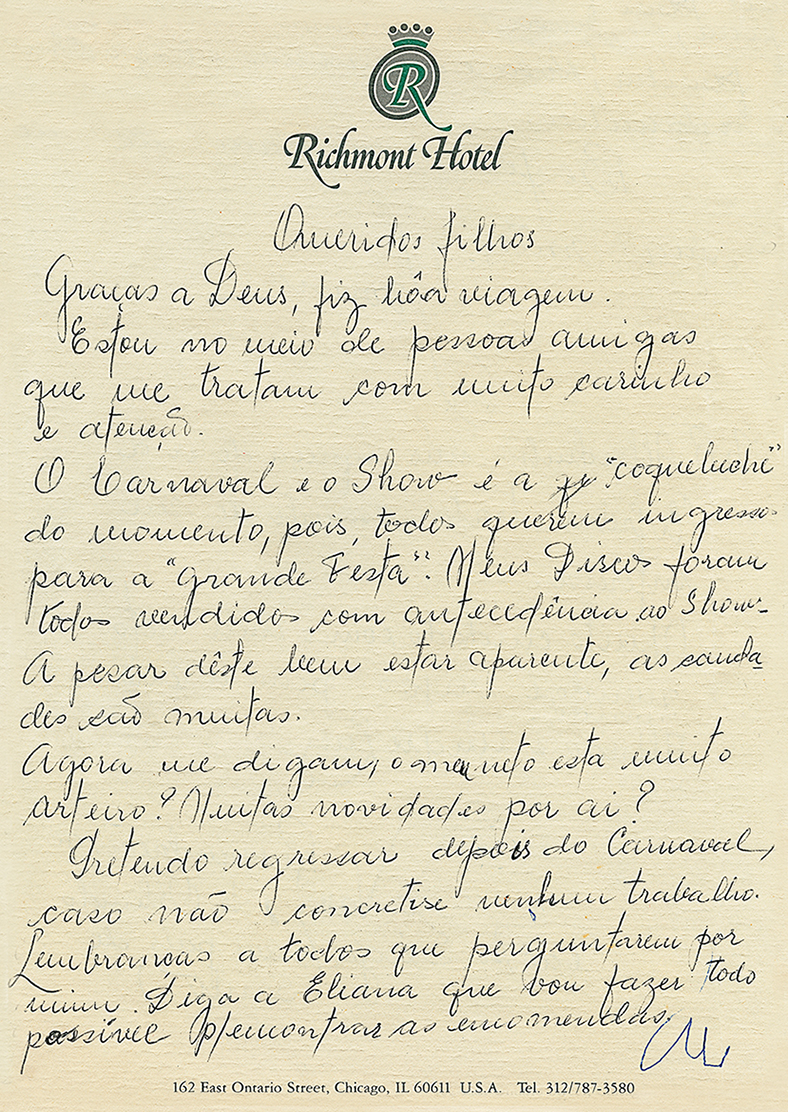 R
Richmont Hotel
Queridos filhos
Graças a Deus, fiz bôa viagem.
Estou no meio de pessoas amigas
que me tratam com muito carinho
e atenção.
O Carnaval e o Show é a "coqueluche"
do momento, pois, todos querem ingressos
para a "Grande Festa". Meus Discos foram
todos vendidos com antecedência ao Show.
A pesar dêste bem estar aparente, as sauda
des são muitas.
Agora me digam, o meu neto esta muito
arteiro? Muitas novidades por ai?
Pretendo regressar depois do Carnaval,
caso não concretise nenhum trabalho.
Lembranças a todos que perguntarem por
mim. Diga a Eliana que vou fazer todo
possível p/encontrar as encomendas.
162 East Ontario Street, Chicago, IL 60611 U.S.A. Tel. 312/787-3580